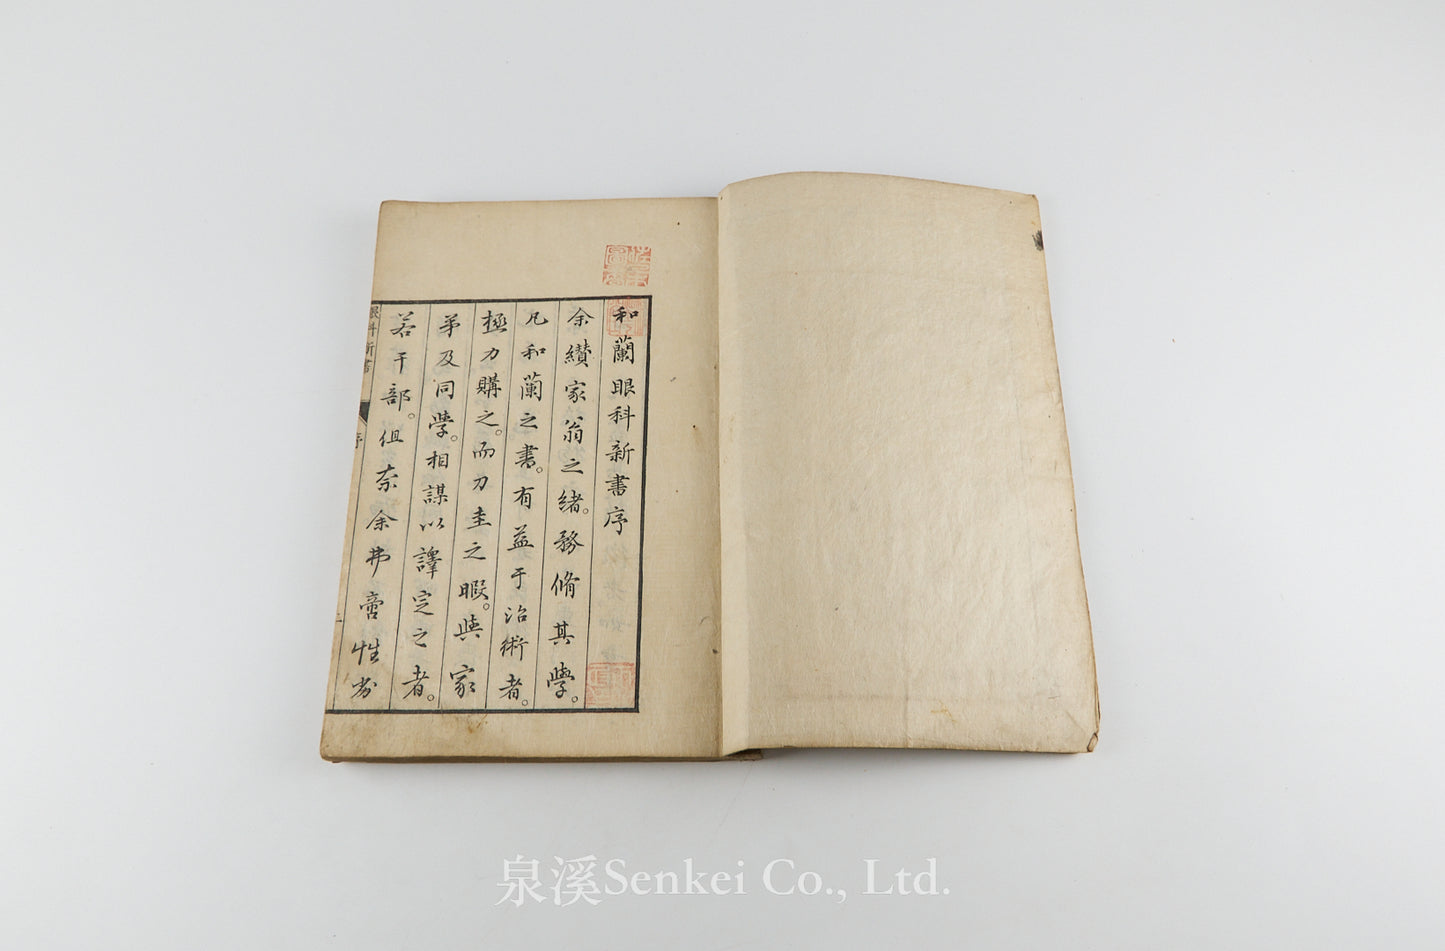 和蘭眼科新書序
余纘家翁之緒。務脩其學。
凡和蘭之書。有益于治術者。
極力購之。而刀圭之暇。與家
弟及同學。相謀以譯定之者。
若干部。但奈余弗啻性劣
眼科新書
序
泉溪Senkei Co., Ltd.